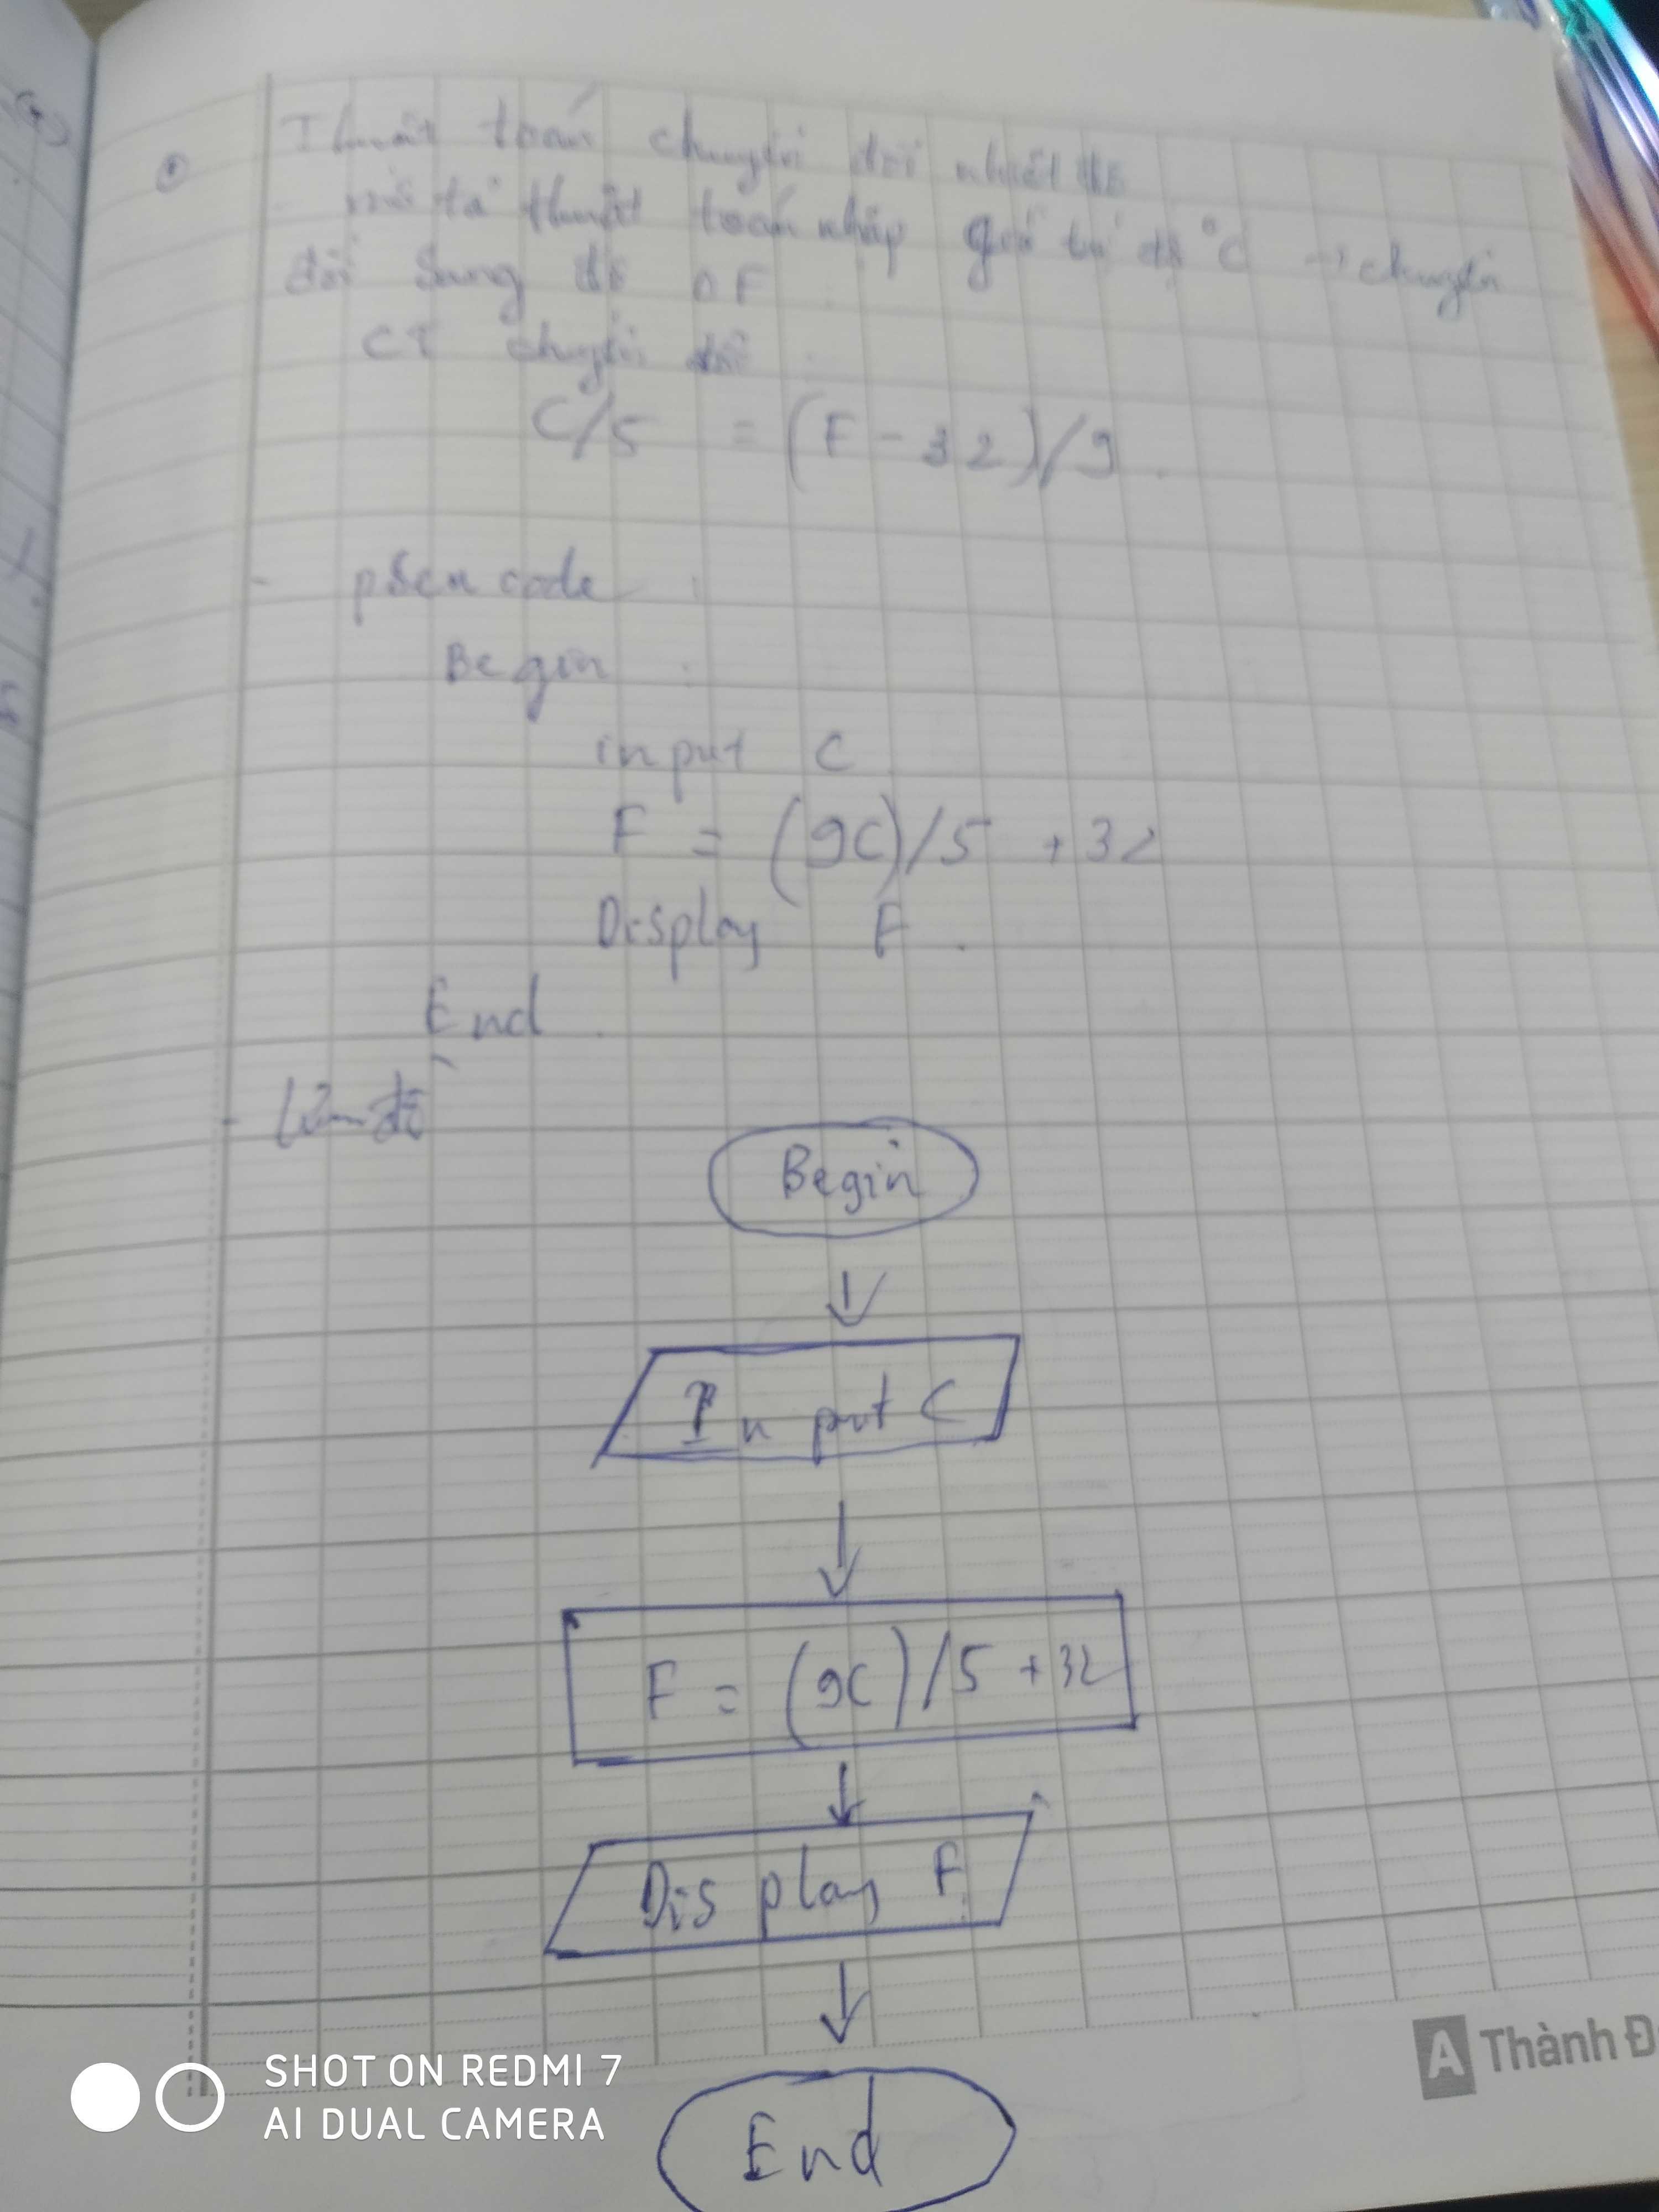 Thuật toán chuyển đổi nhiệt độ
mô tả thuật toán nhập giá trị độ °C → chuyển
đổi sang độ °F
CT chuyển đổi
C/5 = (F - 32)/9
- pseu code :
Begin :
input C
F = (9C)/5 + 32
Display F.
End.
- lưu đồ
Begin
Input C
F = (9C)/5 + 32
Display F
End
A Thành Đ
SHOT ON REDMI 7
AI DUAL CAMERA